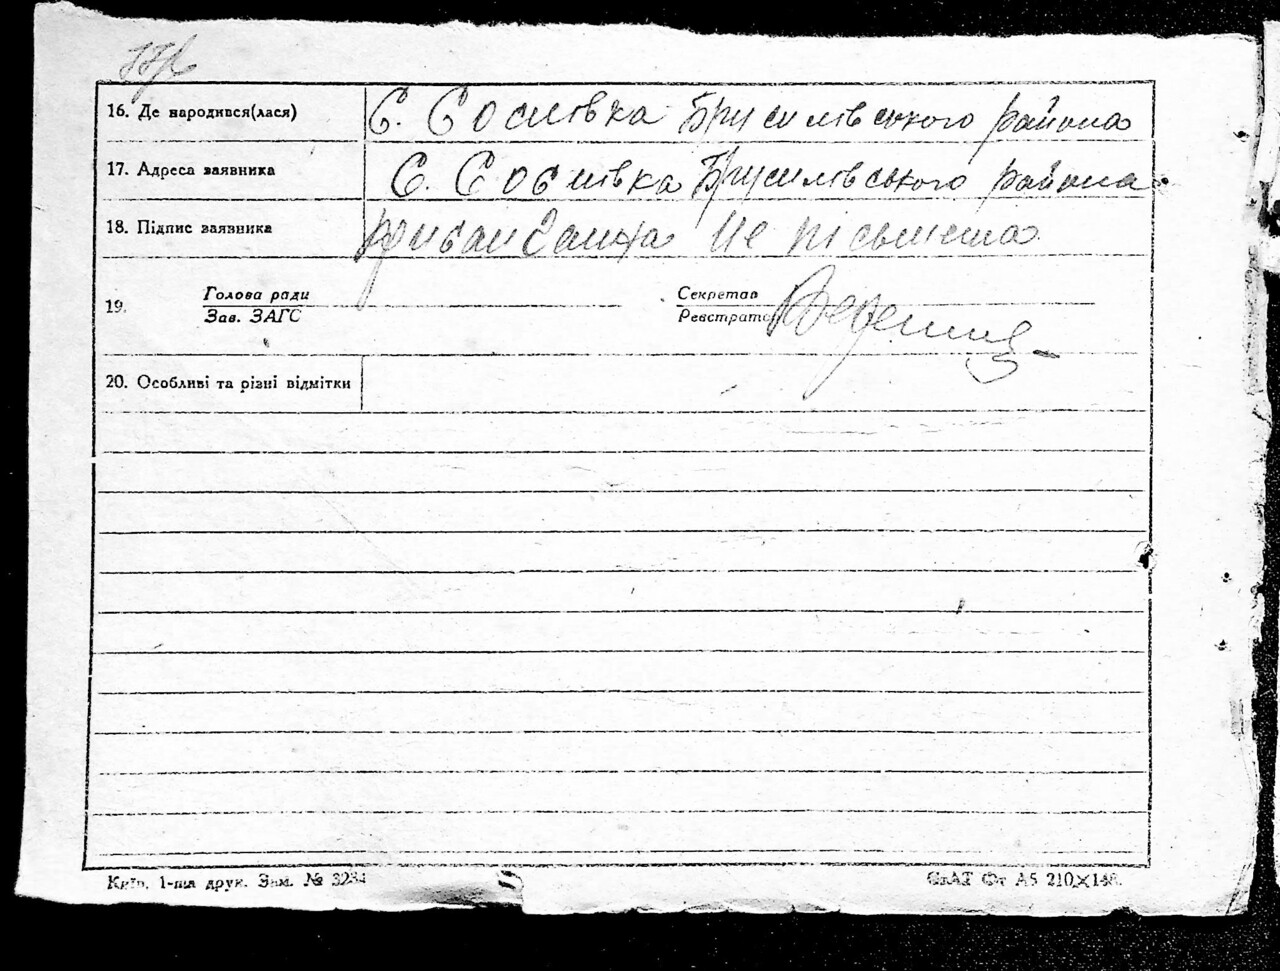 16. Де народився(лася) С. Сосновка Брусилівського района
17. Адреса заявника С. Сосновка Брусилівського района
18. Підпис заявника не пісьмена
19. Голова ради Секретар
Зав. ЗАГС Реєстратор
20. Особливі та різні відмітки
Київ, 1-ша друк. Зам. № 3234
СтАТ Фт А5 210×148.